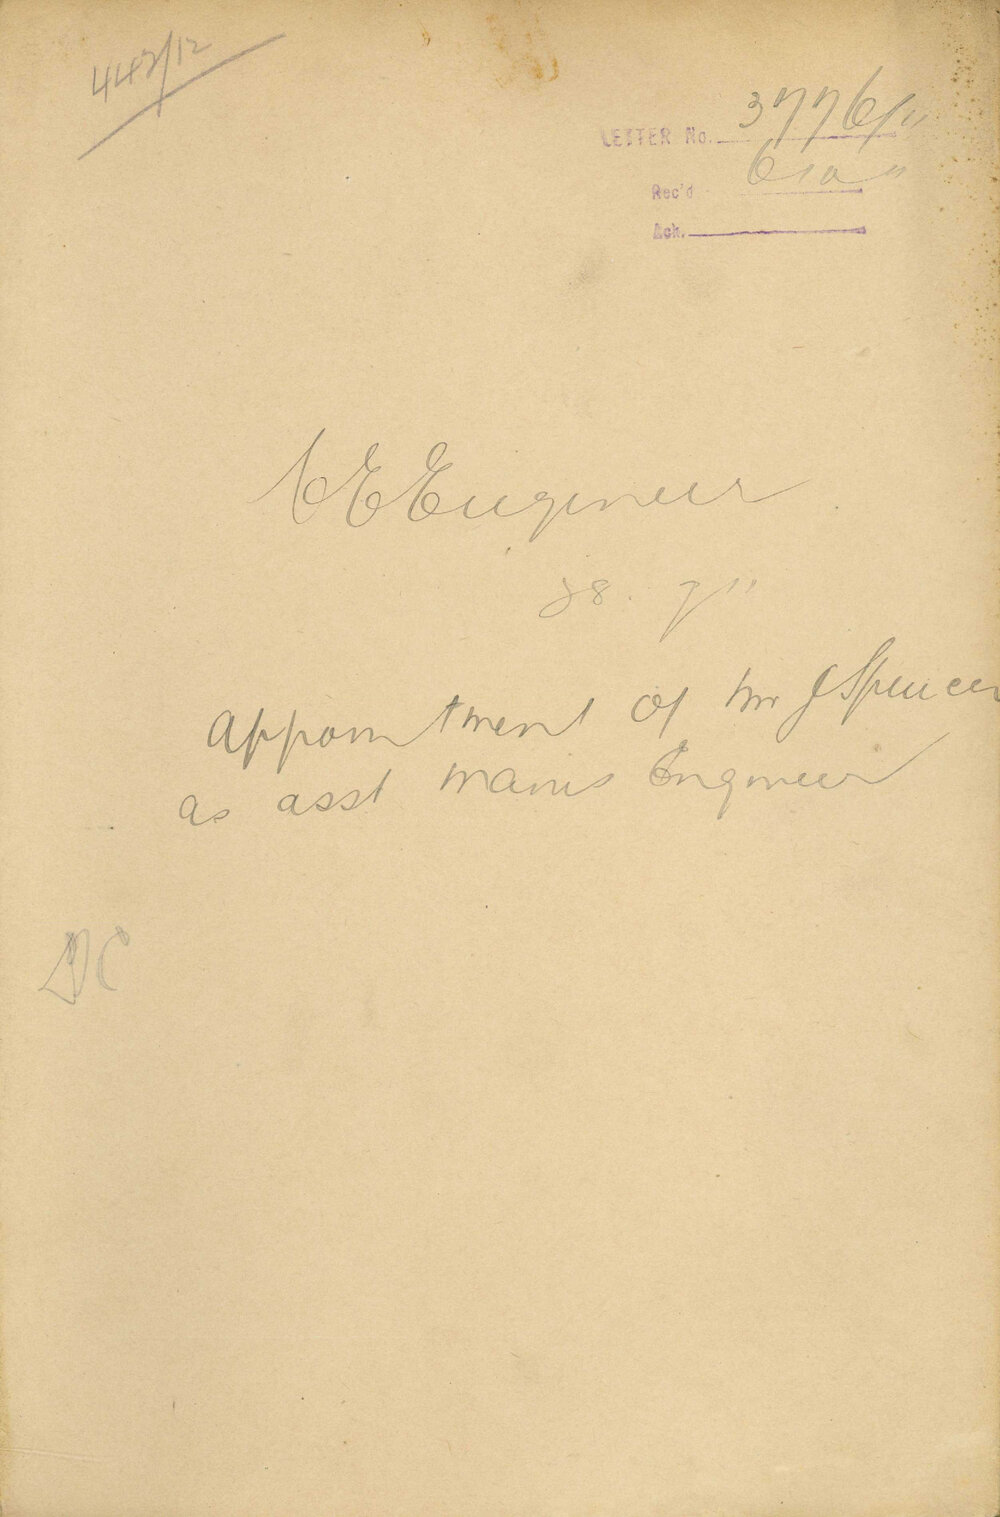 442/12
LETTER No. 3776/11
Rec'd 6 10 11
Ack.
C E Engineer
28. 9 11
Appointment of Mr J Spencer
as asst Mains Engineer
DC